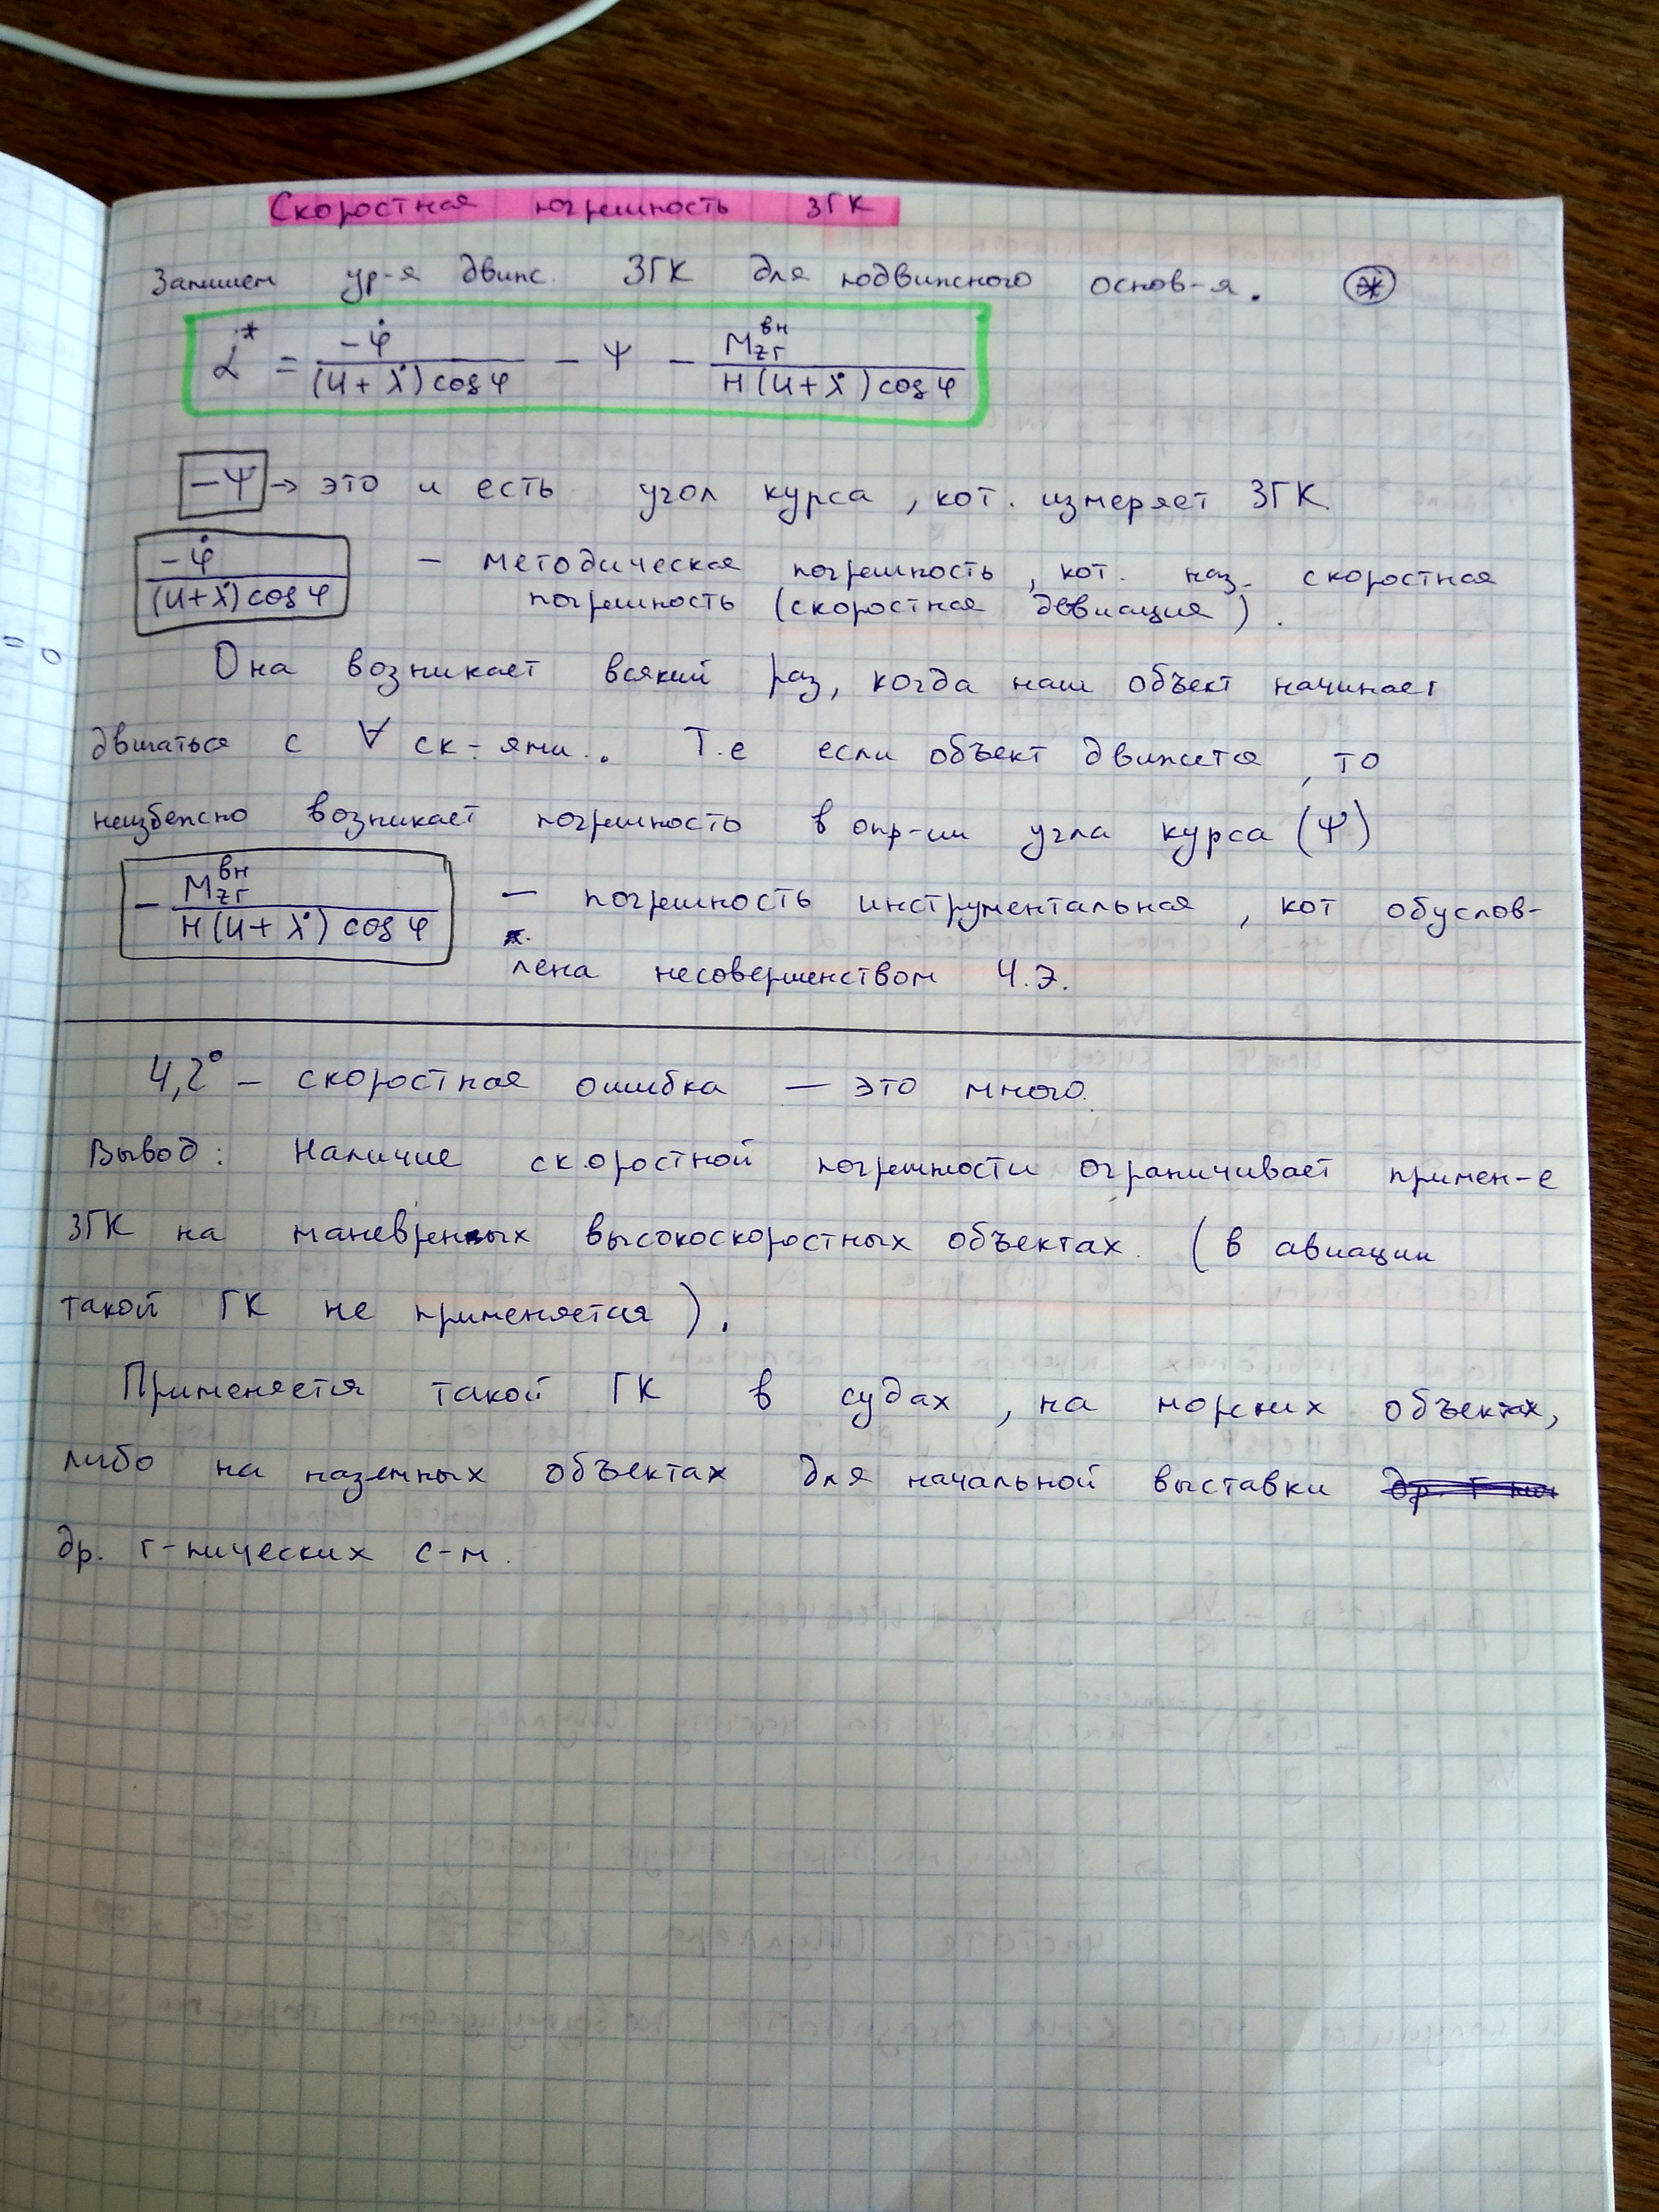 Скоростная погрешность ЗГК
Запишем ур-я движ. ЗГК для подвижного основ-я. (*)
α̇* = -φ̇ / ((U + λ̇) cos φ) - Ψ - M_zг^вн / (H (U + λ̇) cos φ)
-Ψ → это и есть угол курса, кот. измеряет ЗГК.
-φ̇ / ((U + λ̇) cos φ) - методическая погрешность, кот. наз. скоростная
погрешность (скоростная девиация).
= 0
Она возникает всякий раз, когда наш объект начинает
двигаться с ∀ ск-ями. Т.е если объект движется, то
неизбежно возникает погрешность в опр-ии угла курса (Ψ)
- M_zг^вн / (H (U + λ̇) cos φ) — погрешность инструментальная, кот обуслов-
лена несовершенством Ч.Э.
4,2° – скоростная ошибка — это много.
Вывод: Наличие скоростной погрешности ограничивает примен-е
ЗГК на маневренных высокоскоростных объектах. (в авиации
такой ГК не применяется).
Применяется такой ГК в судах, на морских объектах,
либо на наземных объектах для начальной выставки
др. г-пических с-м.